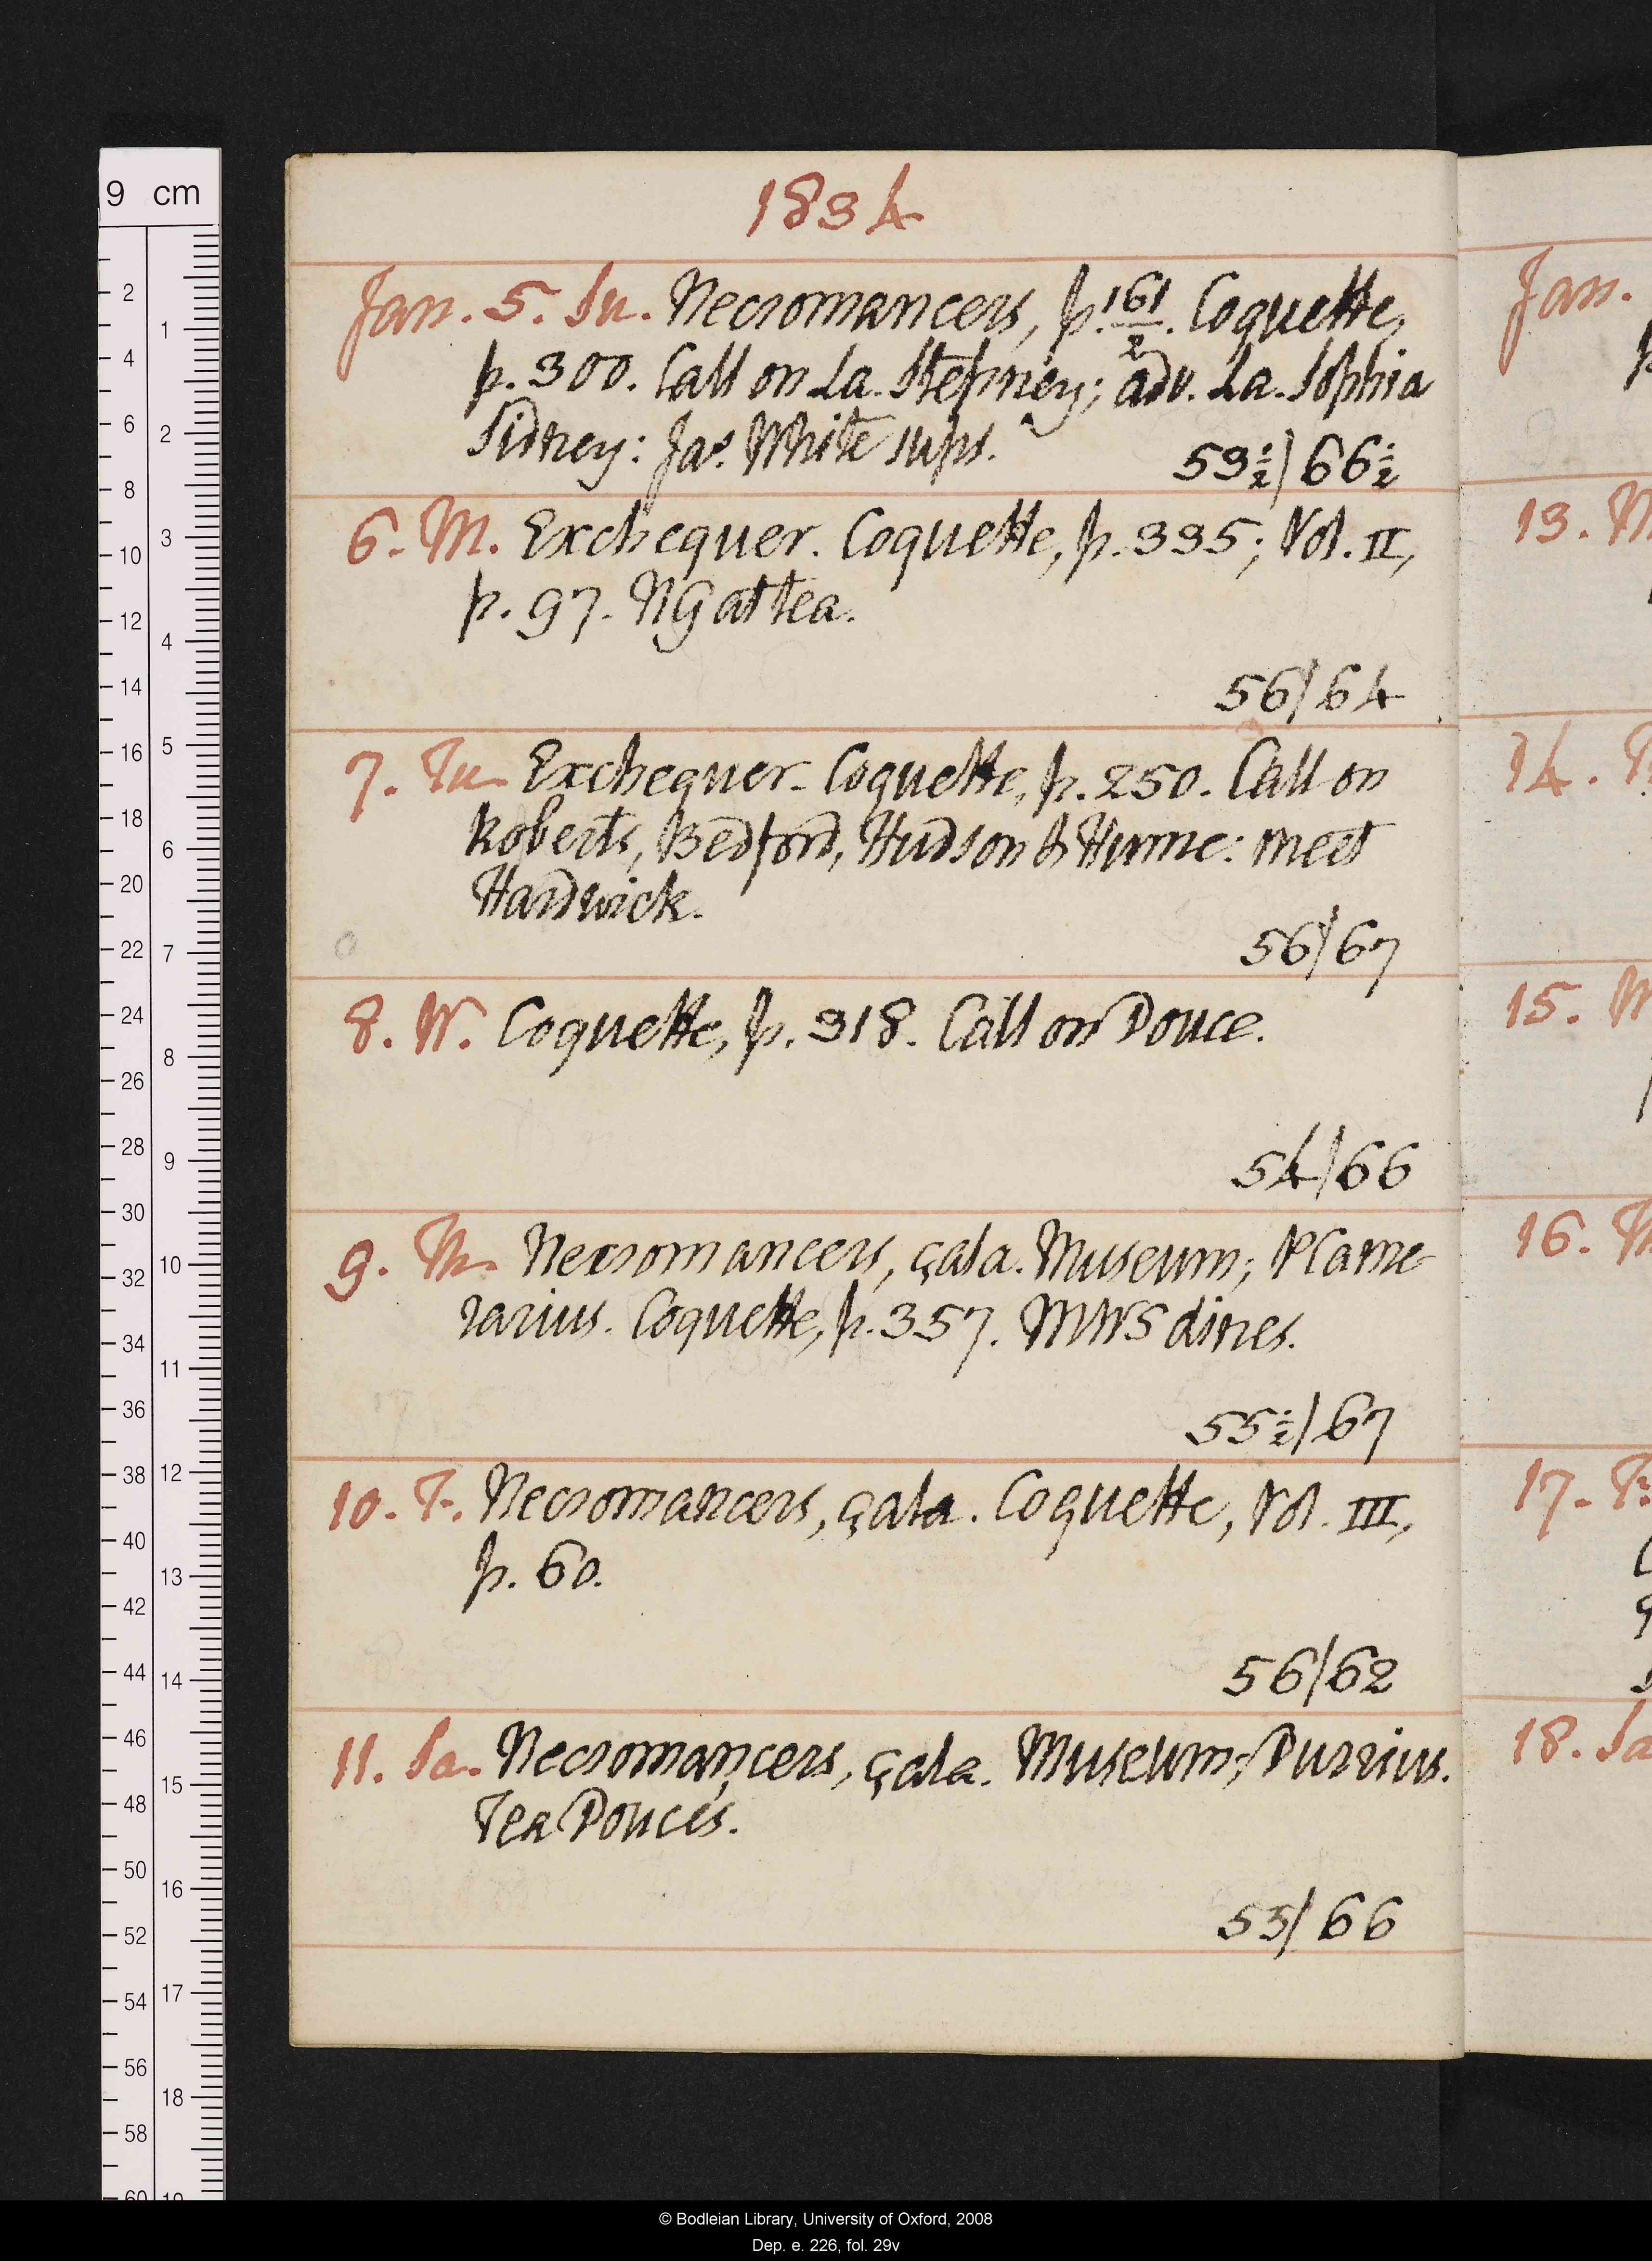 1834
Jan. 5. Su. Necromancers, p. 161/2. Coquette,
p. 300. Call on La. Stepney; adv. La. Sophia
Sidney: Jas. White sups.
59½/66½
6. M. Exchequer. Coquette, p. 335; Vol. II,
p. 97. NG at tea.
56/64
7. Tu. Exchequer. Coquette, p. 250. Call on
Roberts, Bedford, Hudson & Hume: meet
Hardwick.
56/67
8. W. Coquette, p. 318. Call on Douce.
54/66
9. Th. Necromancers, çala. Museum; P Came-
rarius. Coquette, p. 357. MWS dines.
55½/67
10. F. Necromancers, çala. Coquette, Vol. III,
p. 60.
56/62
11. Sa. Necromancers, çala. Museum; Durrius.
Tea Douce's.
55/66
Jan.
13. M
14. T
15. W
16. Th
17. F
18. Sa
9 cm
2
4
6
8
10
12
14
16
18
20
22
24
26
28
30
32
34
36
38
40
42
44
46
48
50
52
54
56
58
60
1
2
3
4
5
6
7
8
9
10
11
12
13
14
15
16
17
18
19
© Bodleian Library, University of Oxford, 2008
Dep. e. 226, fol. 29v